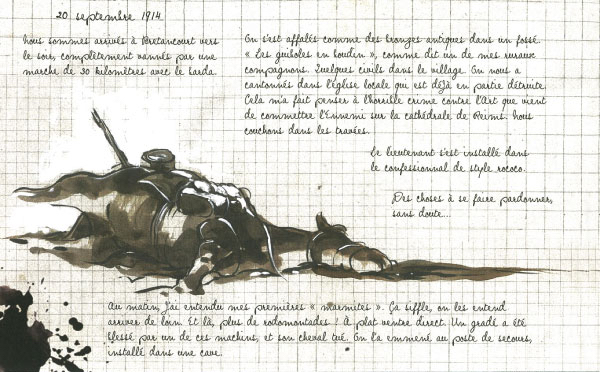 20 septembre 1914
Nous sommes arrivés à Bretancourt vers
le soir, complètement vannés par une
marche de 30 kilomètres avec le barda.
On s'est affalés comme des bronzes antiques dans un fossé.
« Les guiboles en boudin », comme dit un de mes ruraux
compagnons. Quelques civils dans le village. On nous a
cantonnés dans l'église locale qui est déjà en partie détruite.
Cela m'a fait penser à l'horrible crime contre l'Art que vient
de commettre l'Ennemi sur la cathédrale de Reims. Nous
couchons dans les travées.
Le lieutenant s'est installé dans
le confessionnal de style rococo.
Des choses à se faire pardonner,
sans doute...
Au matin, j'ai entendu mes premières « marmites ». Ça siffle, on les entend
arriver de loin. Et là, plus de rodomontades ! À plat ventre direct. Un gradé a été
blessé par un de ces machins, et son cheval tué. On l'a emmené au poste de secours,
installé dans une cave.